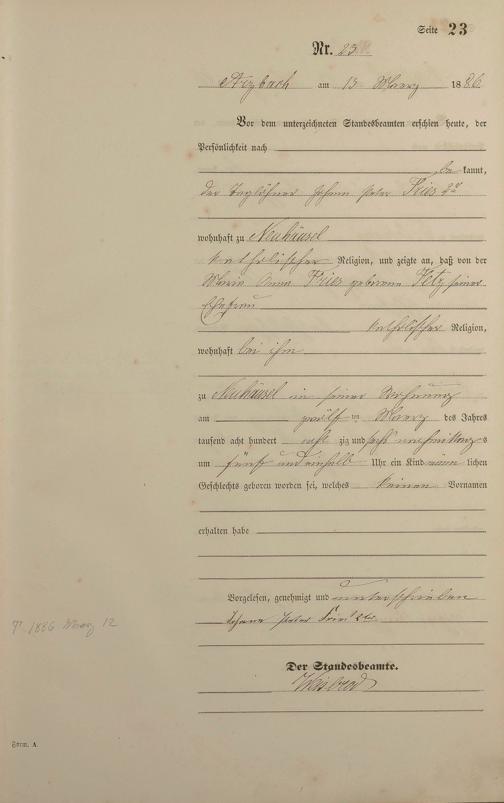 Seite 23
Nr. 23
Arzbach am 13 Maerz 1886
Vor dem unterzeichneten Standesbeamten erschien heute, der
Persönlichkeit nach
be kannt,
der Taglöhner Johann Peter Fries 2r
wohnhaft zu Neuhäusel
katholischer Religion, und zeigte an, daß von der
Maria Anna Fries geborene Hetz seiner
Ehefrau
katholischer Religion,
wohnhaft bei ihm
zu Neuhäusel in seiner Wohnung
am zwölf ten Maerz des Jahres
tausend acht hundert acht zig und sechs nachmittags
um fünf und einhalb Uhr ein Kind männ lichen
Geschlechts geboren worden sei, welches keinen Vornamen
erhalten habe
Vorgelesen, genehmigt und unterschrieben
Johann Peter Fries 2ter
Der Standesbeamte.
† 1886 Maerz 12
Form. A.